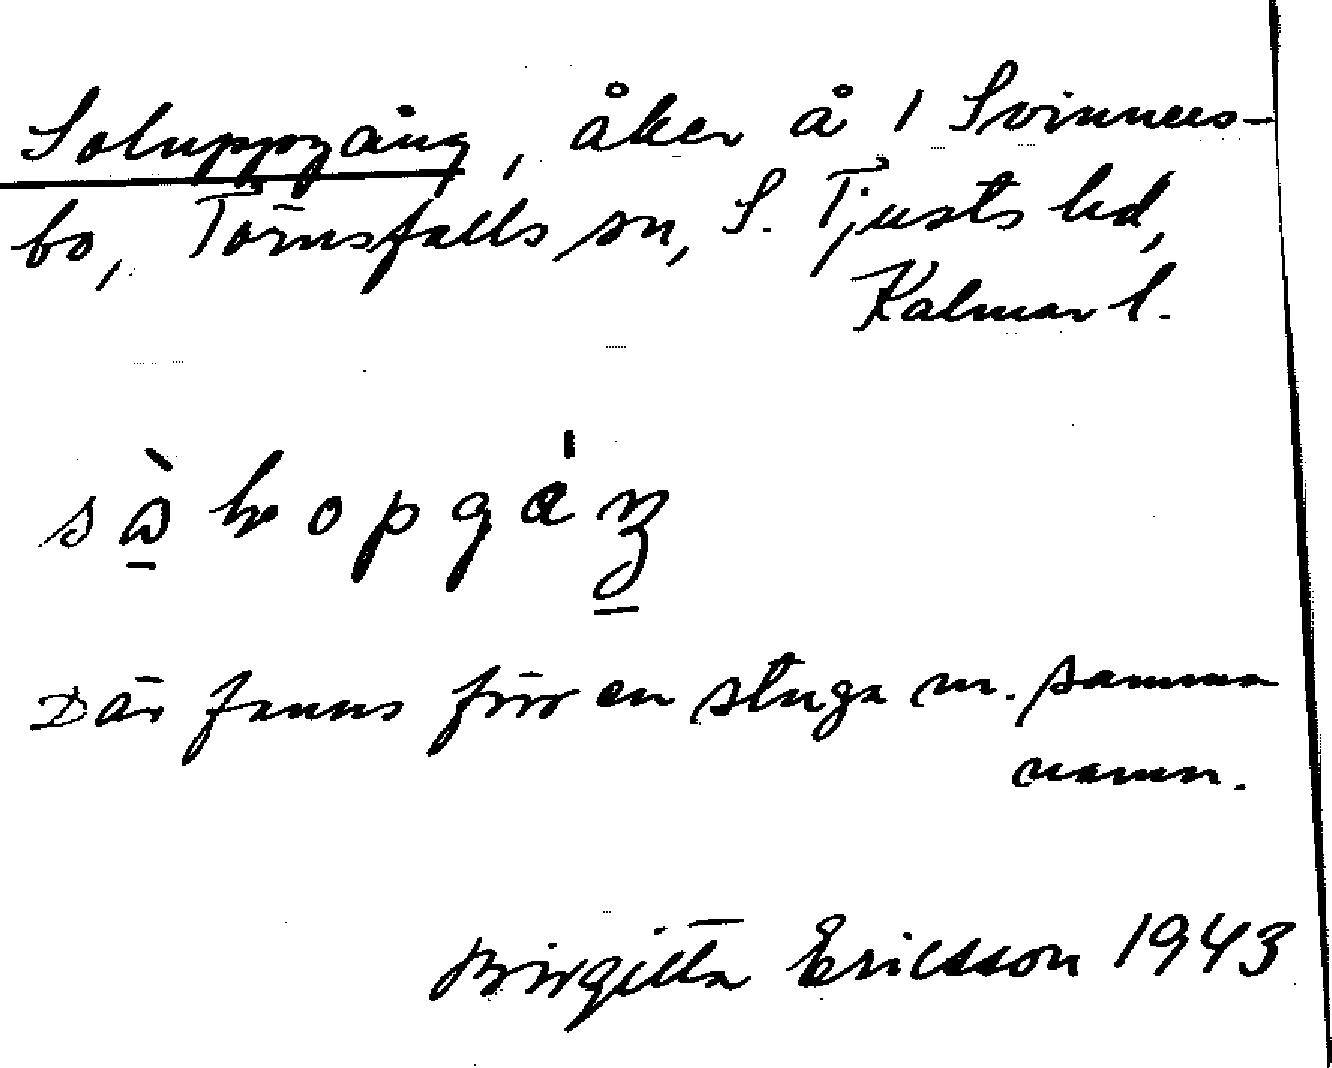 Soluppgång, åker å 1 Svinners-
bo, Törnsfalls sn, S. Tjusts hd,
Kalmar l.
Där fanns förr en stuga m. samma
namn.
Birgitta Ericsson 1943